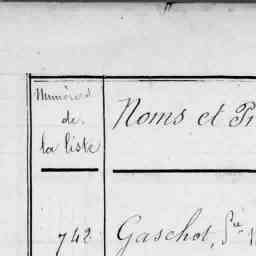 Numéros
de
la liste
Noms et Pr
742
Gaschot,